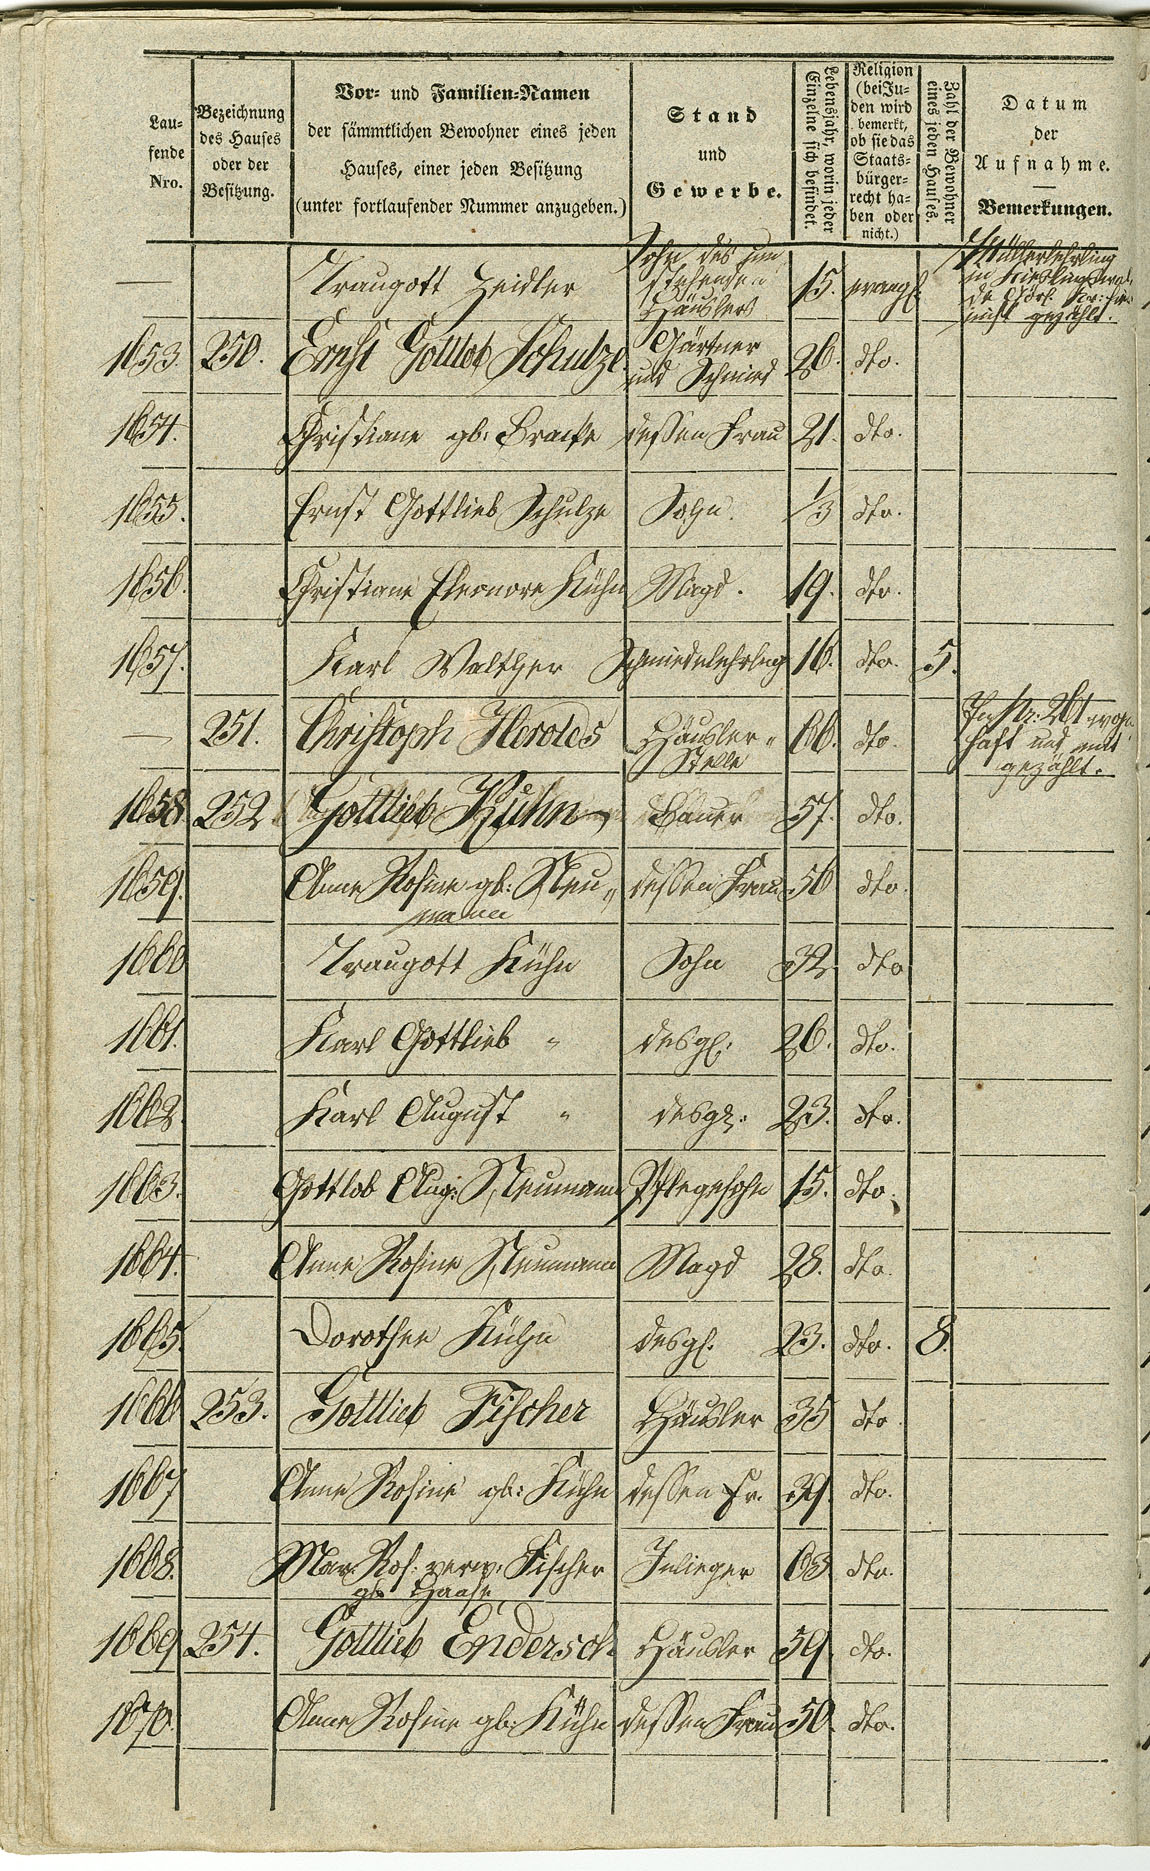 Lau-
fende
Nro.
Bezeichnung
des Hauses
oder der
Besitzung.
Vor- und Familien-Namen
der sämmtlichen Bewohner eines jeden
Hauses, einer jeden Besitzung
(unter fortlaufender Nummer anzugeben.)
Stand
und
Gewerbe.
Lebensjahr, worin jeder
Einzelne sich befindet.
Religion
(bei Ju-
den wird
bemerkt,
ob sie das
Staats-
bürger-
recht ha-
ben oder
nicht.)
Zahl der Bewohner
eines jeden Hauses.
Datum
der
Aufnahme.
Bemerkungen.
— Traugott Zeidler Sohn des
stehenden
Häuslers 15. evangl. Müllerlehrling
in
nicht gezählt.
1653. 250. Ernst Gottlob Schulze Gärtner
und Schmied 26. dto.
1654. Christiane gb: Bracke dessen Frau 21. dto.
1655. Ernst Gottlieb Schulze Sohn. 1/3 dto.
1656. Christiane Eleonore Kühn Magd. 19. dto.
1657. Karl Walther Schmiedelehrlng 16. dto. 5.
— 251. Christoph Herolds Häusler-
Stelle 66. dto. Nr: 261
haft und mit
gezählt.
1658. 252 Gottlieb Kühn Bauer 57. dto.
1659. Anne Rosine gb: Neu-
mann dessen Frau 56 dto.
1660 Traugott Kühn Sohn 32. dto
1661. Karl Gottlieb " desgl. 26. dto.
1662. Karl August " desgl: 23. dto.
1663. Gottlob Aug: Neumann Pflegesohn 15. dto.
1664. Anne Rosine Neumann Magd 28. dto.
1665. Dorothee Kühn desgl. 23. dto. 8.
1666 253. Gottlieb Fischer Häusler 35 dto
1667 Anne Rosine gb: Kühn dessen Fr. 39. dto.
1668. Mar. Ros. verw. Fischer
gb. Haase Inlieger 63. dto.
1669 254. Gottlieb Endersch Häusler 59. dto.
1670. Anne Rosine gb: Kühn dessen Frau 50. dto.